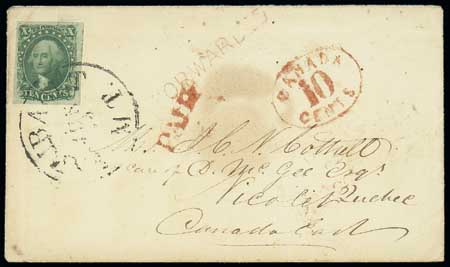 X X
TEN CENTS
FORWARDED
PAID
CANADA
10
CENTS
VT
Mr. J. C. N. Cottrell
care of D. McGee Esqr.
Nicolet, Quebec
Canada East